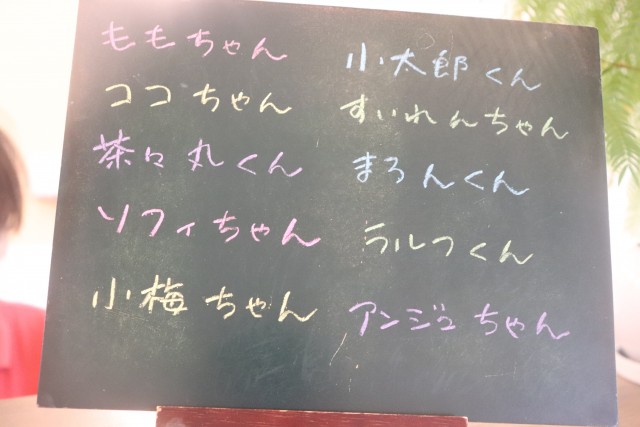 ももちゃん
ココちゃん
茶々丸くん
ソフィちゃん
小梅ちゃん
小太郎くん
すいれんちゃん
まろんくん
ラルフくん
アンジュちゃん